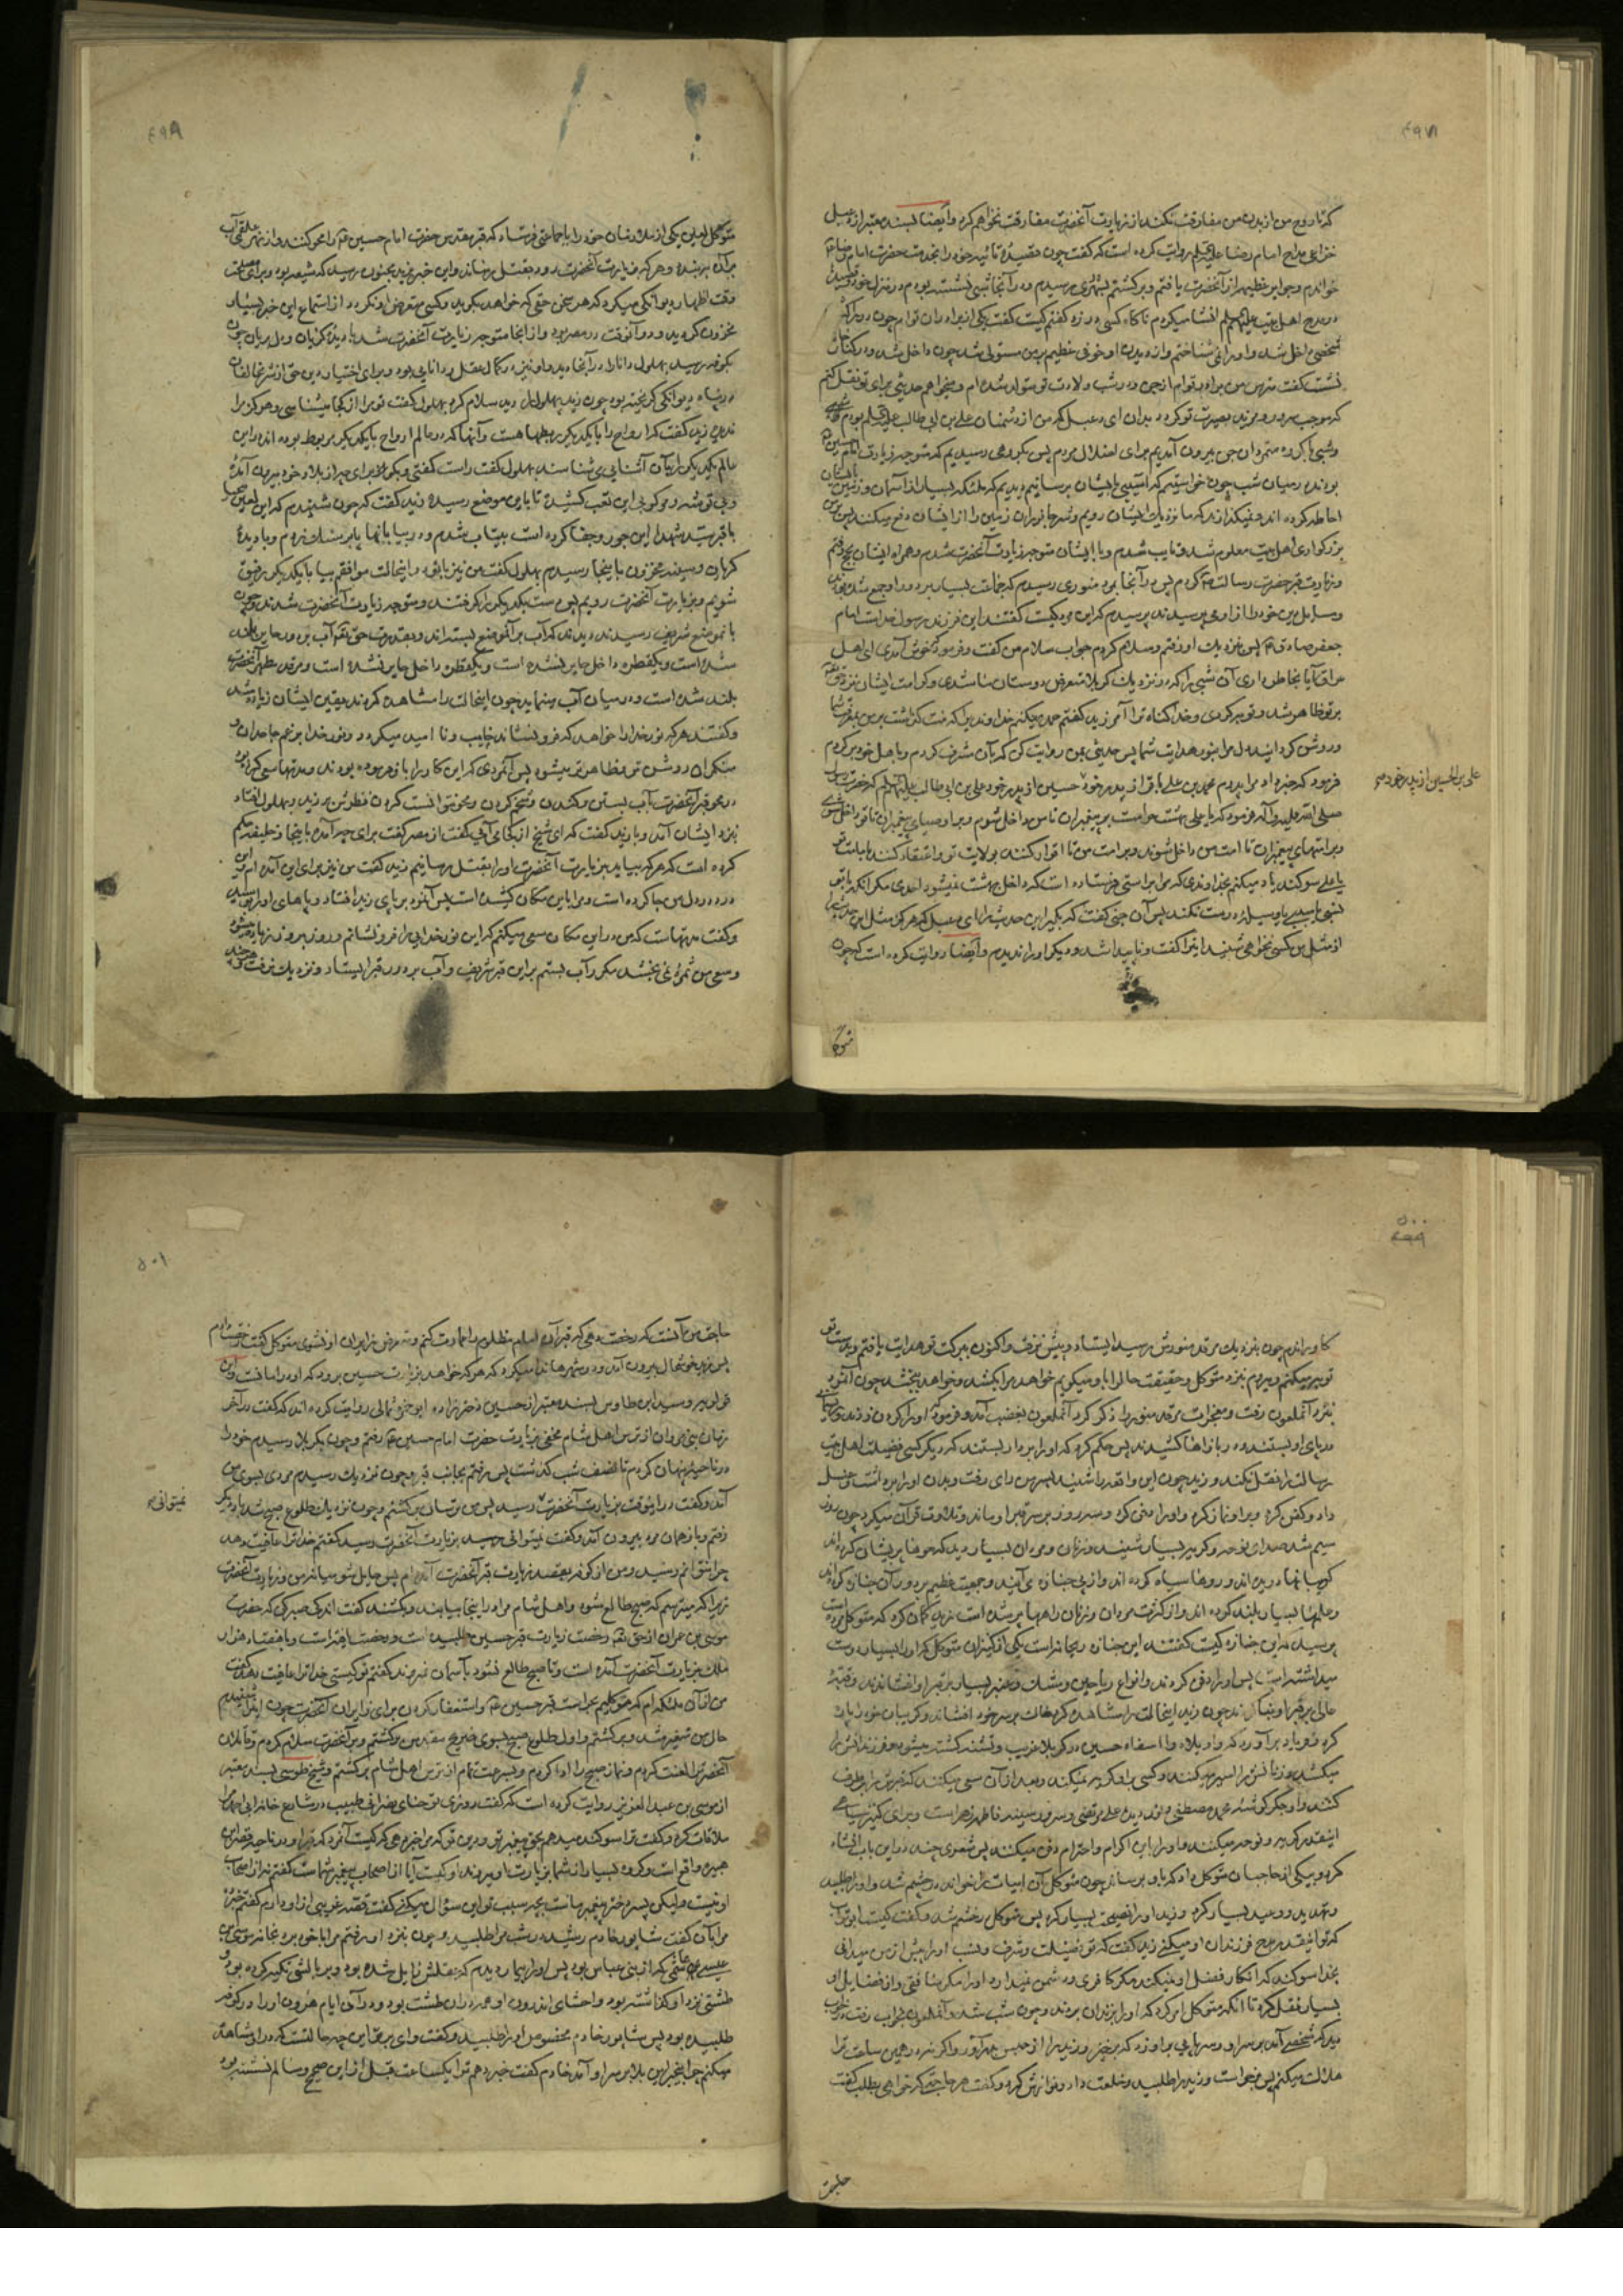 که تا روح من از بدن من مفارقت نکند از زیارت آنحضرت مفارقت نخواهم کرد و ایضا بسند معتبر از دعبل
خزاعی مداح امام رضا علیه السلام روایت کرده است که گفت چون قصیده تائیه خود را بخدمت حضرت امام رضا
خواندم و جوایز عظیمه از آنحضرت یافتم و برگشتم بشهر ری رسیدم و در آنجا شبی نشسته بودم در منزل خود و قصیده
در مدح اهل بیت علیهم السلام انشا میکردم ناگاه کسی در زد گفتم کیست گفت یکی از برادران توام چون در را
شخصی داخل شد و او را نمی شناختم و از دیدن او خوفی عظیم بر من مستولی شد چون داخل شد و در کنار
نشست گفت مترس من برادر توام از جن و در شب ولادت تو متولد شده ام و میخواهم حدیثی برای تو نقل کنم
که موجب سرور و مزید بصیرت تو گردد بدان ای دعبل که من از دشمنان علی بن ابی طالب علیه السلام بودم
و شبی با گروه متمردان جن بیرون آمدیم برای اضلال مردم پس بگروهی رسیدیم که متوجه زیارت امام حسین
بودند در میان شب چون خواستیم که آسیبی بایشان برسانیم دیدیم که ملئکه بسیار از آسمان و زمین
احاطه کرده اند و نمیگذارند که ما نزدیک ایشان رویم و شر جانوران زمین را از ایشان دفع میکنند پس
بزرگواری اهل بیت معلوم شد و تایب شدم و با ایشان متوجه زیارت آنحضرت شدم و همراه ایشان بحج رفتم
و زیارت قبر حضرت رسالت کردم پس در آنجا بمرد منوری رسیدم که جماعت بسیار بر دور او جمع شده بودند
و مسایل دین خود را از او می پرسیدند پرسیدم که این مرد کیست گفتند این فرزند رسول خداست امام
جعفر صادق پس نزدیک او رفتم و سلام کردم جواب سلام من گفت و فرمود که خوش آمدی ای اهل
عراق آیا بخاطر داری آن شبی را که در نزدیک کربلا متعرض دوستان ما شدی و کرامت ایشان نزد حق
بر تو ظاهر شد و توبه کردی و خدا گناه ترا آمرزید گفتم حمد میکنم خداوندی را که منت گذاشت بر من بمعرفت شما
و روشن کرد ایند دل مرا بنور هدایت شما پس حدیثی بمن روایت کن که بآن مشرف گردم و باهل خود برگردم
فرمود که خبر داد مرا پدرم محمد بن علی باقر از پدر خود حسین از پدر خود علی بن ابی طالب علیهم السلام که حضرت رسول
علی بن الحسین از پدر خود
صلی الله علیه و آله فرمود که یا علی بهشت حرامست بر پیغمبران تا من داخل شوم و بر اوصیای پیغمبران تا تو داخل شوی
و بر امتهای پیغمبران تا امت من داخل شوند و بر امت من تا اقرار کنند بولایت تو و اعتقاد کنند بامامت تو
یا علی سوگند یاد میکنم بخداوندی که مرا براستی فرستاده است که داخل بهشت نمیشود احدی مگر آنکه با تو
نسبی یا سببی یا وسیله درست نکند پس آن جنی گفت که بگیر این حدیث را ای دعبل که هرگز مثل این حدیث
از مثل من کسی نخواهی شنید اینرا گفت و ناپیدا شد و دیگر او را ندیدم و ایضا روایت کرده است که چون
متوکل
متوکل لعین یکی از ملازمان خود را با جماعتی فرستاد که قبر مقدس حضرت امام حسین را محو کنند و از نهر علقمی آب
بر آن ببندند و هر که بزیارت آنحضرت رود بقتل رسانند و این خبر بزید مجنون رسید که شیعه بود و برای مصلحت
وقت اظهار دیوانگی میکرد که هر سخن حقی که خواهد بگوید و کسی متعرض او نگردد از استماع این خبر بسیار
محزون گردید و در آنوقت در مصر بود و از انجا متوجه زیارت آنحضرت شد با دیده گریان و دل بریان چون
بکوفه رسید بهلول دانا را در آنجا دید و او نیز در کمال عقل و دانایی بود و برای اختیار دین حق از شر مخالفان
در پناه دیوانگی گریخته بود چون زید بهلول را دید سلام کرد بهلول گفت تو مرا از کجا میشناسی و هرگز مرا
ندیدی زید گفت که ارواح را با یکدیگر ربطها هست و آنها که در عالم ارواح با یکدیگر مربوط بوده اند در این
عالم یکدیگر را بآن آشنایی می شناسند بهلول گفت راست گفتی و بگو که برای چه از بلاد خود بیرون آمده
و بی توشه و مرکوبی این تعب کشیده تا باین موضع رسیده زید گفت که چون شنیدم که این لعین
با قبر سید شهدا این جور و جفا کرده است بیتاب شدم و در بیابانها پا برهنه و با دیده
گریان و سینه محزون باینجا رسیدم بهلول گفت من نیز با تو در اینحالت موافقم بیا با یکدیگر رفیق
شویم و بزیارت آنحضرت رویم پس دست یکدیگر را گرفتند و متوجه زیارت آنحضرت شدند و چون
بانموضع شریف رسیدند دیدند که آب بر آنموضع بسته اند و بقدرت حق تعالی آب بر دور حایر بلند
شده است و یکقطره داخل حایر نشده است و مرقد مطهر آنحضرت
بلند شده است و در میان آب مینماید چون اینحالت را مشاهده کردند یقین ایشان زیاده شد
و گفتند هر که نور خدا را خواهد که فرو نشاند خایب و نا امید میگردد و نور خدا بر غم جاحدان و
منکران روشن تر و ظاهر تر میشود پس آنمردی که این کار را باو فرموده بودند و مدتها سعی کرده بود
در محو قبر آنحضرت بآب بستن و کندن و شخم کردن و محو نتوانست کردن نظرش بر زید و بهلول افتاد
نزد ایشان آمد و با زید گفت که ای شیخ از کجا می آیی گفت از مصر گفت برای چه آمده باینجا که خلیفه حکم
کرده است که هر که بیاید بزیارت آنحضرت او را بقتل برسانیم زید گفت من نیز برای این آمده ام که این
درد در دل من جا کرده است و مرا باین مکان کشیده است پس آنمرد بر پای زید افتاد و پاهای او را بوسید
و گفت مدتهاست که من در این مکان سعی میکنم که این نور خدایی را فرو نشانم و روز بروز زیاده میشود
و سعی من ثمره نمی بخشد مکرر آب بستم بر این قبر شریف و آب بر دور قبر ایستاد و نزدیک نرفت
گاو راندم چون بنزدیک مرقد منورش رسید ایستاد و پیش نرفت و اکنون ببرکت تو هدایت یافتم و بدست تو
توبه میکنم و میروم بنزد متوکل و حقیقت حال را باو میگویم خواهد مرا بکشد و خواهد ببخشد چون آنمرد
بنزد آنملعون رفت و معجزات مرقد منور را ذکر کرد آنملعون بغضب آمد و فرمود که او را گردن زدند و
در پای او بستند و در بازارها کشیدند پس حکم کرد که او را بر دار بستند که دیگر کسی فضیلت اهل بیت
رسالت را نقل نکند و زید چون این واقعه را شنید بسر من رای رفت و بدن او را برداشت و غسل
داد و کفن کرد و بر او نماز کرد و او را دفن کرد و سه روز بر سر قبر او ماند و تلاوت قرآن میکرد چون روز
سیم شد صدای نوحه و گریه بسیار شنید و زنان و مردان بسیار دید که موها پریشان کرده اند
گریبانها دریده اند و روها سیاه کرده اند و از پی جنازه می آیند و جمعیت عظیم بر دور آن جنازه کرده اند
و علمها بسیار بلند کرده اند و از کثرت مردان و زنان راهها پر شده است زید گمان کرد که متوکل مرده است
پرسید که این جنازه کیست گفتند این جنازه ریحانه است یکی از کنیزان متوکل که او را بسیار دوست
میداشته است پس او را دفن کردند و انواع ریاحین و مشک و عنبر بسیار بر قبر او افشاندند و قبه
عالی بر قبر او بنا کردند چون زید اینحالت را مشاهده کرد خاک بر سر خود افشاند و گریبان خود پاره
کرد و فریاد بر آورد که وا ویلاه وا اسفاه حسین در کربلا غریب و تشنه کشته میشود و فرزندانش را
میکشند و زنانش را اسیر میکنند و کسی بر او گریه نمیکند و بعد از آن سعی میکنند که قبرش را بر طرف
کنند و او جگر گوشه محمد مصطفی و نور دیده علی مرتضی و سرور سینه فاطمه زهراست و برای کنیز سیاهی
اینقدر گریه و نوحه میکنند و او را باین اکرام و احترام دفن میکنند پس شعری چند در این باب انشاء
کرد و بیکی از حاجبان متوکل داد که باو برساند چون متوکل آن ابیات را خواند در خشم شد و او را طلبید
و تهدید و وعید بسیار کرد و زید او را نصیحت بسیار کرد پس متوکل در خشم شد و گفت کیست ابو تراب
که تو اینقدر مدح فرزندان او میکنی زید گفت که تو فضیلت و شرف و نسب او را بیش از من میدانی
بخدا سوگند که انکار فضل او نمیکند مگر کافری و دشمن نمیدارد او را مگر منافقی و از فضایل او
بسیار نقل کرد تا آنکه متوکل امر کرد که او را بزندان بردند و چون شب شد و آنملعون بخواب رفت در خواب
دید که شخصی آمد بر سر او و سر پایی بر او زد که برخیز و زید را از حبس بیرون آور و اگر نه در همین ساعت ترا
هلاک میکنم پس برخواست و زید را طلبید و خلعت داد و نوازش کرد و گفت هر حاجتی که خواهی بطلب گفت
حاجت
حاجت من آنست که رخصت دهی که قبر آن امام مظلوم را عمارت کنم و متعرض زایران او نشوی متوکل گفت رخصت دادم
پس زید خوشحال بیرون آمد و در شهرها ندا میکرد که هر که خواهد بزیارت حسین برود که او را امانست و ابن
قولویه و سید ابن طاوس بسند معتبر از حسین دختر زاده ابو حمزه ثمالی روایت کرده اند که گفت در آخر
زمان بنی مروان از ترس اهل شام مخفی بزیارت حضرت امام حسین رفتم و چون بکربلا رسیدم خود را
در ناحیه پنهان کردم تا نصف شب گذشت پس رفتم بجانب قبر و چون نزدیک رسیدم مردی بسوی من
آمد و گفت در اینوقت بزیارت آنحضرت رسید پس من ترسان برگشتم و چون نزدیک طلوع صبح شد بار دیگر
نمیتوانی
رفتم و باز همان مرد بیرون آمد و گفت نمیتوانی رسید بزیارت آنحضرت رسید گفتم خدا ترا عافیت دهد
چرا نتوانم رسید و من از کوفه بقصد زیارت قبر آنحضرت آمده ام پس حایل مشو میان من و زیارت آنحضرت
زیرا که میترسم که صبح طالع شود و اهل شام مرا در اینجا بیابند و بکشند گفت اندکی صبر کن که حضرت
موسی بن عمران از حق تعالی رخصت زیارت قبر حسین طلبیده است و رخصت یافته است و با هفتاد هزار
ملک بزیارت آنحضرت آمده است و تا صبح طالع نشود بآسمان نمیروند گفتم تو کیستی خدا ترا عافیت دهد گفت
من از آن ملئکه ام که موکلیم بحراست قبر حسین و استغفار کردن برای زایران آنحضرت چون اینرا شنیدم
حال من متغیر شد و برگشتم و اول طلوع صبح بسوی ضریح مقدس برگشتم و بر آنحضرت سلام کردم و قاتلان
آنحضرت را لعنت کردم و نماز صبح را ادا کردم و بسرعت تمام از ترس اهل شام برگشتم و شیخ طوسی بسند معتبر
از موسی بن عبد العزیز روایت کرده است که گفت روزی یوحنای نصرانی طبیب در شارع خانه ابی احمد مرا
ملاقات کرد و گفت ترا سوگند میدهم بحق پیغمبر تو و دین تو که مرا خبر دهی که کیست آنمرد که قبر او در ناحیه قصر ابن
هبیره واقع است و گروه بسیار از شما بزیارت او میروند او کیست آیا از اصحاب پیغمبر شماست گفتم نه از اصحاب
او نیست و لیکن پسر دختر پیغمبر ماست بچه سبب تو این سؤال میکنی گفت قصه غریبی از او دارم گفتم خبر ده
مرا بآن گفت شاپور خادم رشید در شب مرا طلبید و چون بنزد او رفتم مرا با خود برد بخانه موسی بن
عیسی هاشمی که از بنی عباس بود پس او را بیمار دیدم که عقلش زایل شده بود و بر بالشی تکیه کرده بود و
طشتی نزد او گذاشته بود و احشای اندرون او همه در آن طشت بود و در آن ایام هرون او را در کوفه
طلبیده بود پس شاپور خادم مخصوص او را طلبید و گفت وای بر تو این چه حالتست که در او مشاهده
میکنم چرا بیخبر این بلا بر سر او آمد خادم گفت خبر دهم ترا یکساعت قبل از این صحیح و سالم نشسته بود